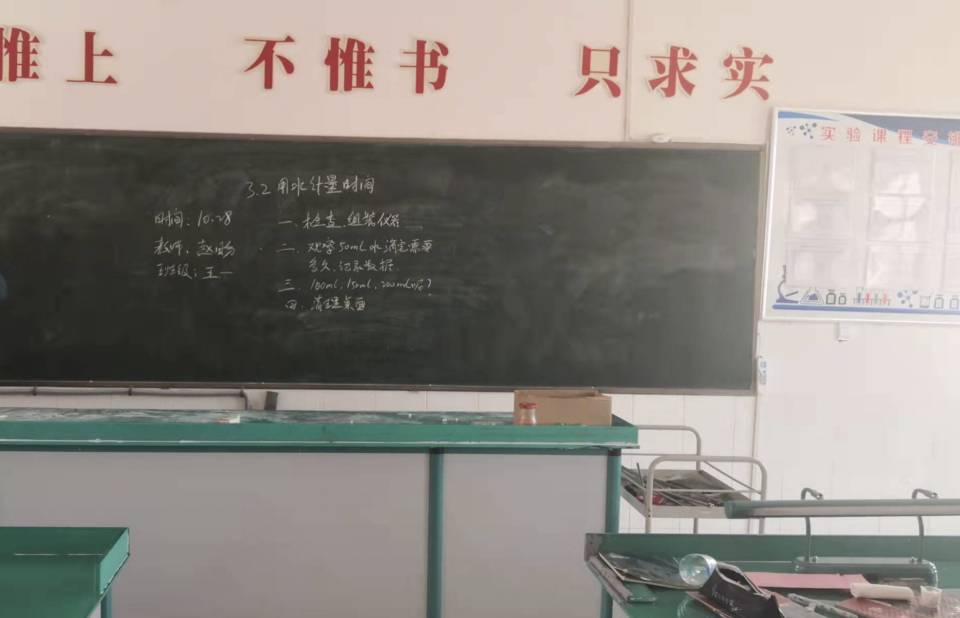 惟上 不惟书 只求实
实验课程
3.2 用水计量时间
时间：10.28
教师：赵
班级：五一
一、检查、组装仪器
二、观察50mL水滴完需要
多久、记录数据
三、100mL、150mL、200mL呢？
四、清理桌面